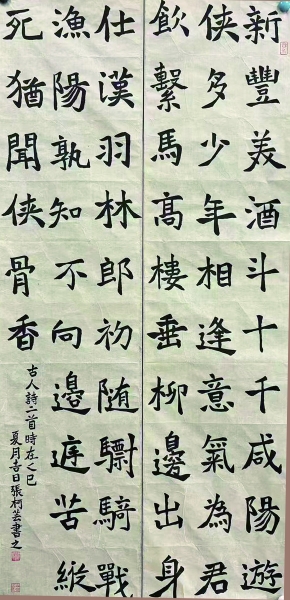 新豐美酒斗十千咸陽遊
侠多少年相逢意氣為君
飲繫馬高樓垂柳邊出身
仕漢羽林郎初随驃騎戰
漁陽孰知不向邊庭苦縱
死猶聞侠骨香
古人詩二首時在乙巳
夏月吉日張柯芸書之